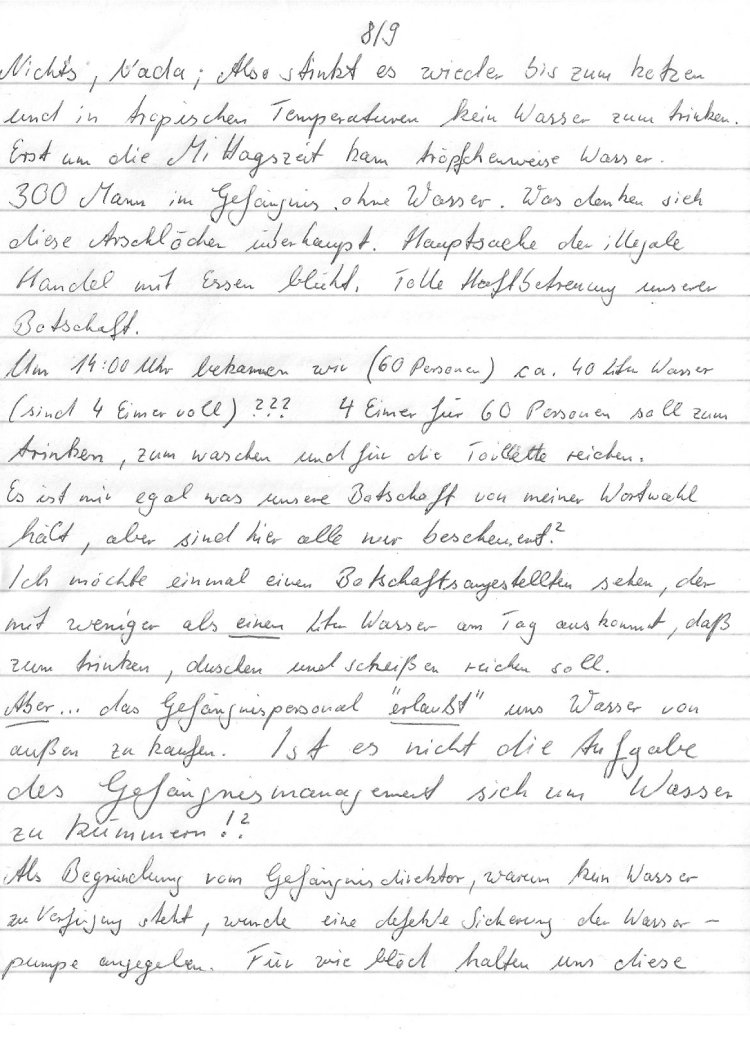 8/9
Nichts, Nada; Also stinkt es wieder bis zum kotzen
und in tropischen Temperaturen kein Wasser zum trinken.
Erst um die Mittagszeit kam tröpfchenweise Wasser.
300 Mann im Gefängnis ohne Wasser. Was denken sich
diese Arschlöcher überhaupt. Hauptsache der illegale
Handel mit Essen blüht. Tolle Haftbetreuung unserer
Botschaft.
Um 14:00 Uhr bekamen wir (60 Personen) ca. 40 Liter Wasser
(sind 4 Eimer voll) ??? 4 Eimer für 60 Personen soll zum
trinken, zum waschen und für die Toilette reichen.
Es ist mir egal was unsere Botschaft von meiner Wortwahl
hält, aber sind hier alle nur bescheuert!?
Ich möchte einmal einen Botschaftsangestellten sehen, der
mit weniger als einen Liter Wasser am Tag auskommt, daß
zum trinken, duschen und scheißen reichen soll.
Aber... das Gefängnispersonal "erlaubt" uns Wasser von
außen zu kaufen. Ist es nicht die Aufgabe
des Gefängnismanagement sich um Wasser
zu kümmern!?
Als Begründung vom Gefängnisdirektor, warum kein Wasser
zu Verfügung steht, wurde eine defekte Sicherung der Wasser-
pumpe angegeben. Für wie blöd halten uns diese